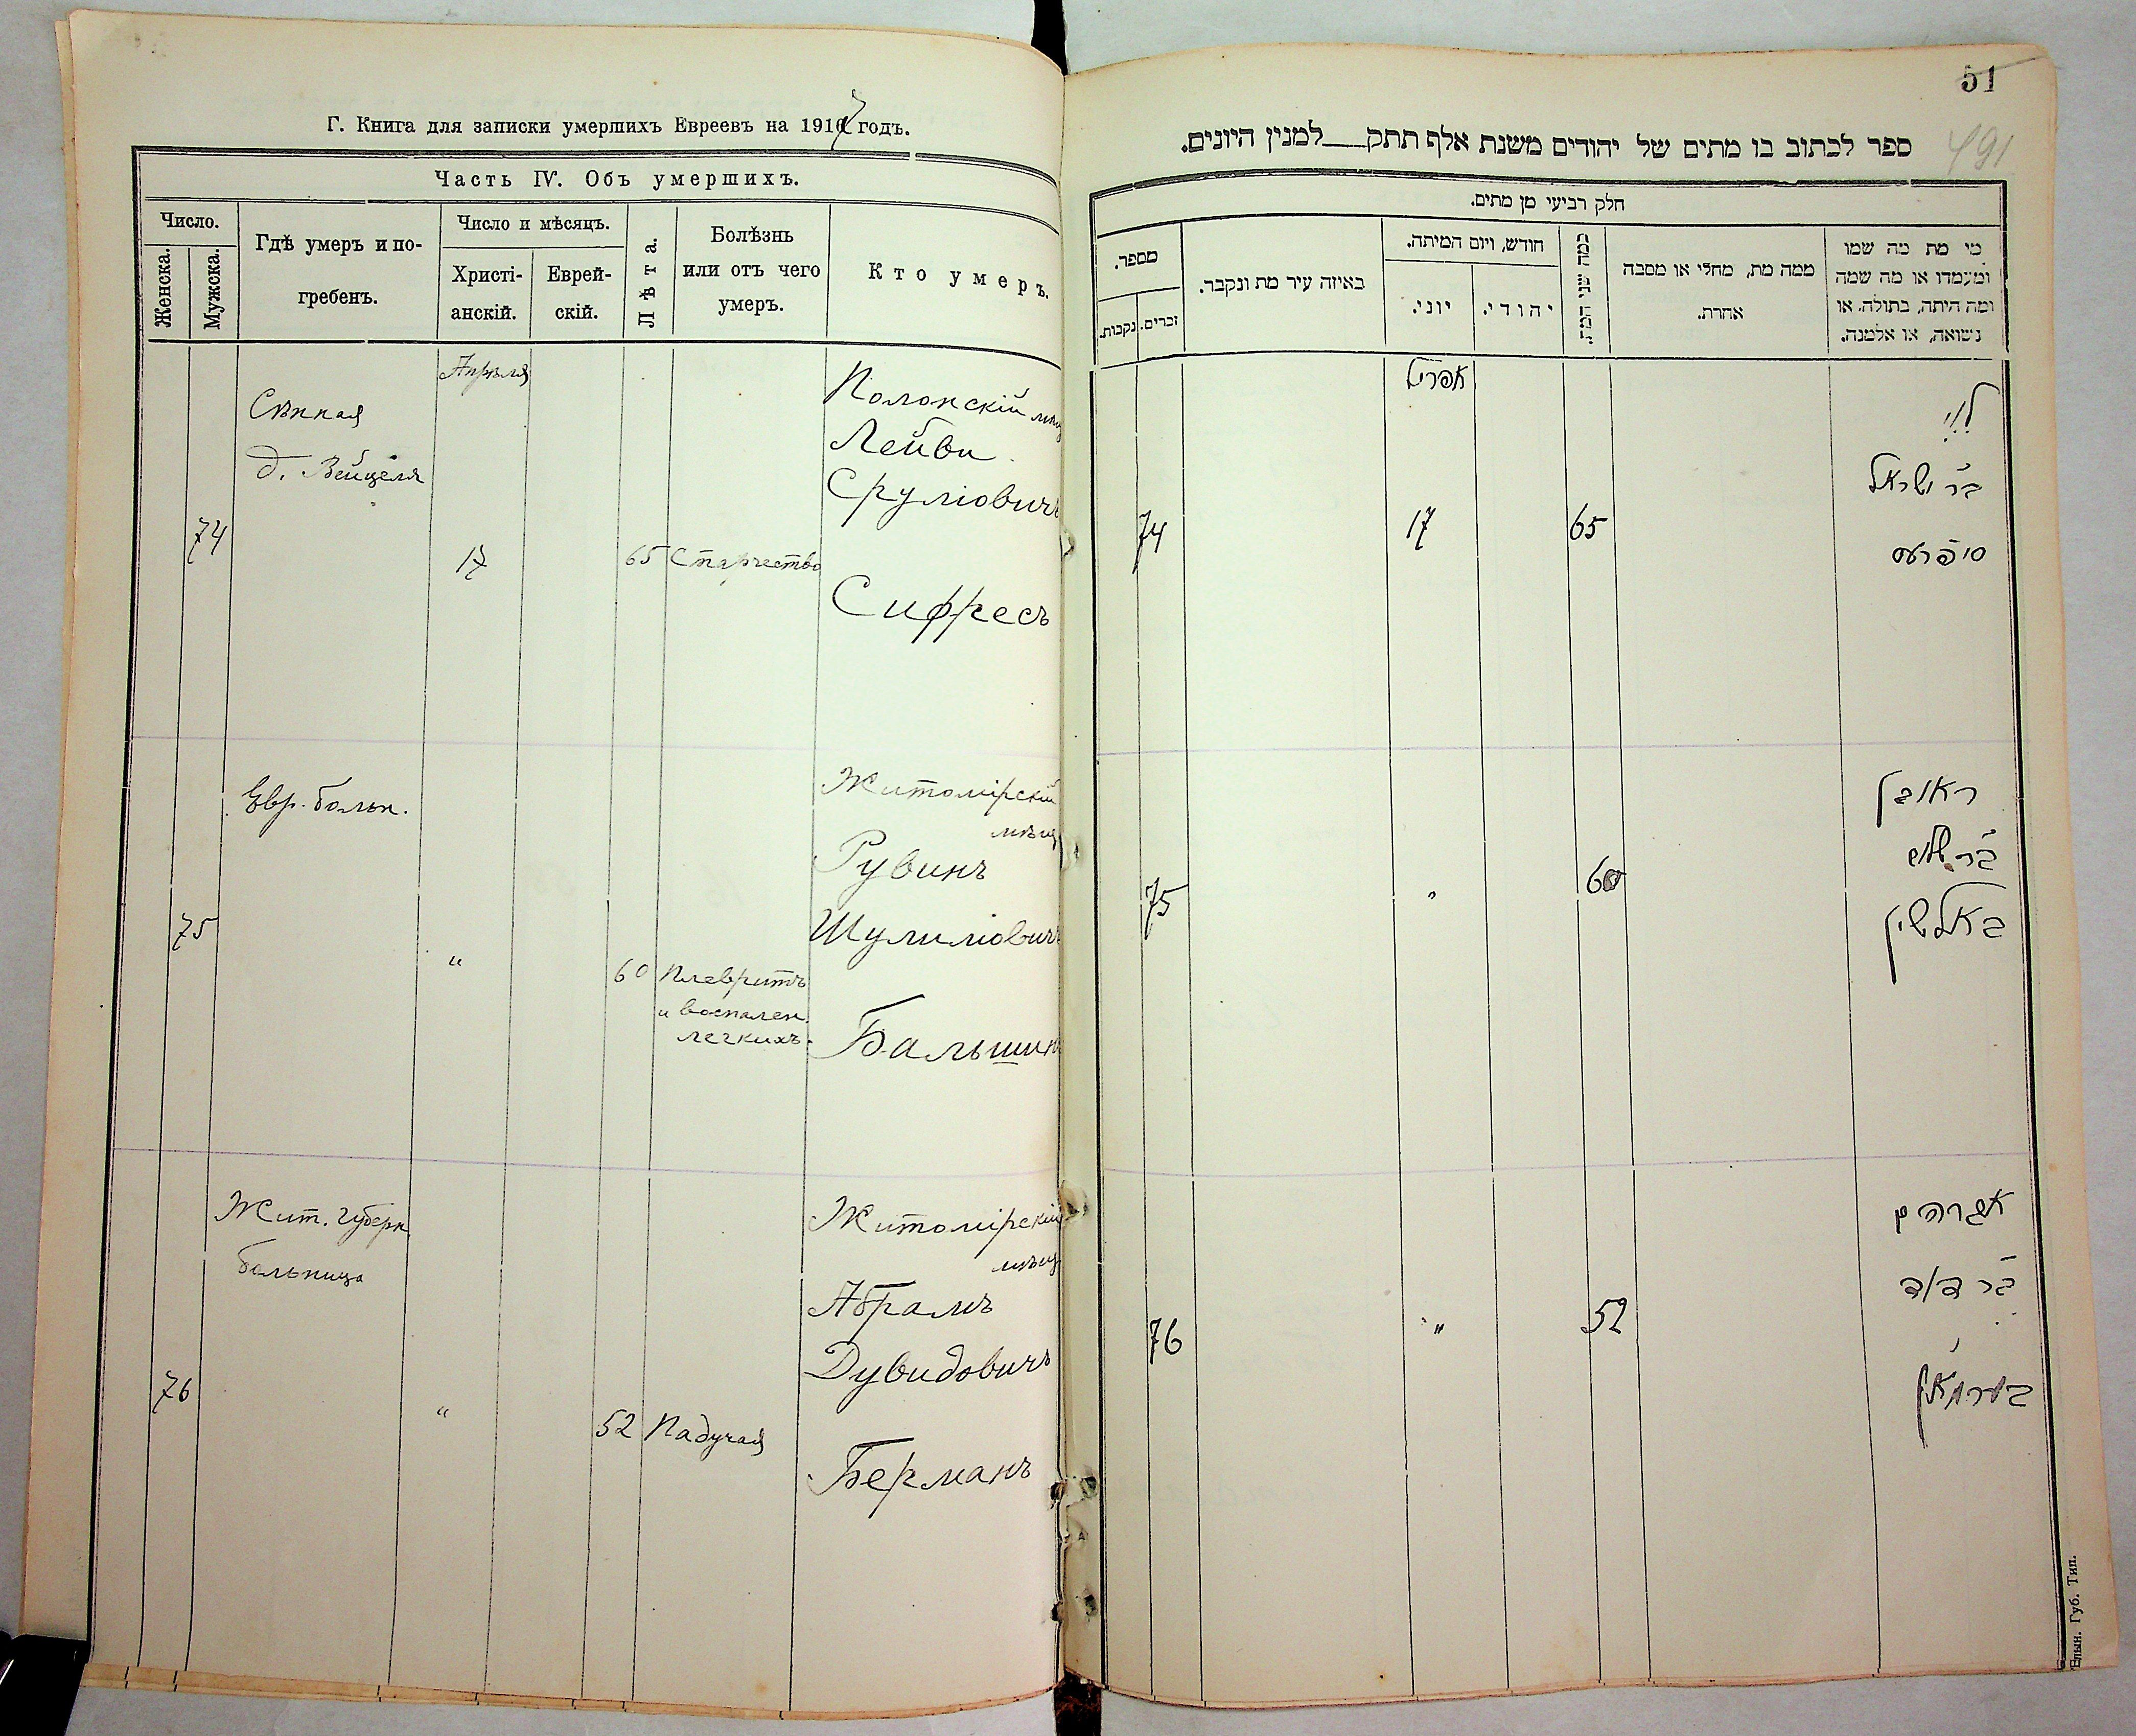 Г. Книга для записки умершихъ Евреевъ на 1917 годъ.
Часть IV. Объ умершихъ.
Число.
Женска.
Мужска.
Гдѣ умеръ и по-
гребенъ.
Число и мѣсяцъ.
Христі-
анскій.
Еврей-
скій.
Лѣта.
Болѣзнь
или отъ чего
умеръ.
Кто умеръ.
Апрѣля
74
Сѣнная
д. Вейцеля
17
65
Старчество
Полонскій мѣщ
Лейви
Сруліовичъ
Сифресъ
75
Евр. больн.
"
60
Плевритъ
и воспален.
легкихъ.
Житомірскій
мѣщ
Рувинъ
Шулиміовичъ
Бальшинъ
76
Жит. Губерн
больница
"
52
Падучая
Житомірскій
мѣщ
Абрамъ
Дувидовичъ
Берманъ
51
491
ספר לכתוב בו מתים של יהודים משנת אלף תתק___למנין היונים.
חלק רביעי מן מתים.
מי מת מה שמו
ומעמדו או מה שמה
ומה היתה, בתולה, או
נשואה, או אלמנה.
ממה מת, מחלי או מסבה
אחרת.
כמה שני המת.
חודש, ויום המיתה.
יהודי.
יוני.
באיזה עיר מת ונקבר.
מספר.
זכרים.
נקבות.
אפריל
לוי
בר ישראל
סיפרעס
65
17
74
ראובן
בר שלום
באלשין
60
"
75
אברהם
בר דוד
בערמאן
52
"
76
Губ. Тип.